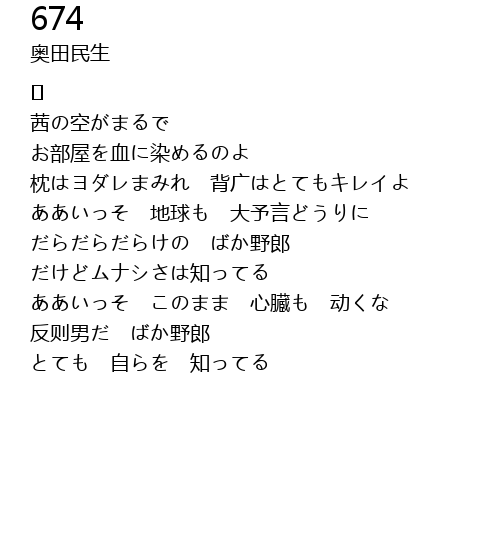 674
奥田民生
茜の空がまるで
お部屋を血に染めるのよ
枕はヨダレまみれ　背广はとてもキレイよ
ああいっそ　地球も　大予言どうりに
だらだらだらけの　ばか野郎
だけどムナシさは知ってる
ああいっそ　このまま　心臓も　动くな
反则男だ　ばか野郎
とても　自らを　知ってる